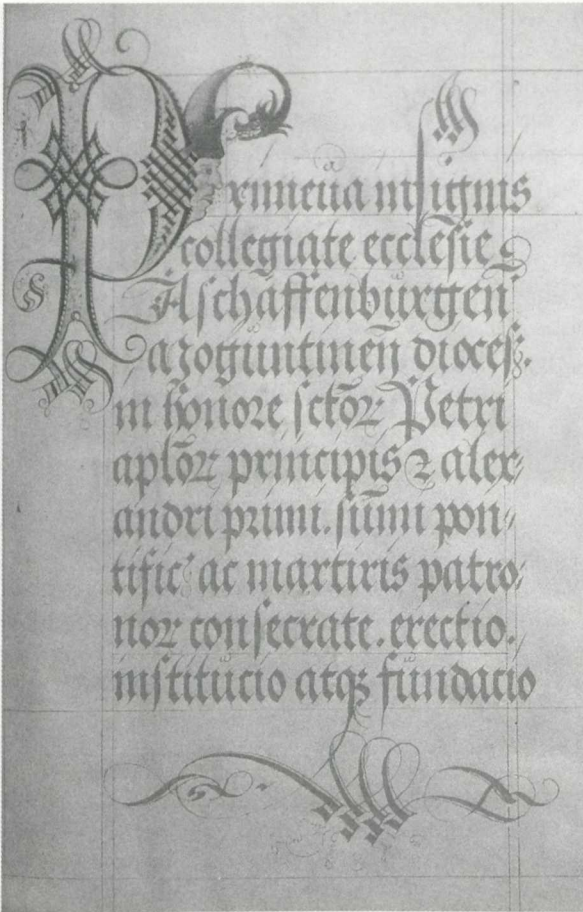 Primeua insignis
collegiate ecclesie
Aschaffenburgen̄
Mogūntinen̄ dioceſ.
in honore sctōꝝ Petri
aplōꝝ principis ⁊ alex-
andri primi. sūmi pon-
tific' ac martiris patro-
noꝝ consecrate. erectio.
institucio atqꝫ fundacio